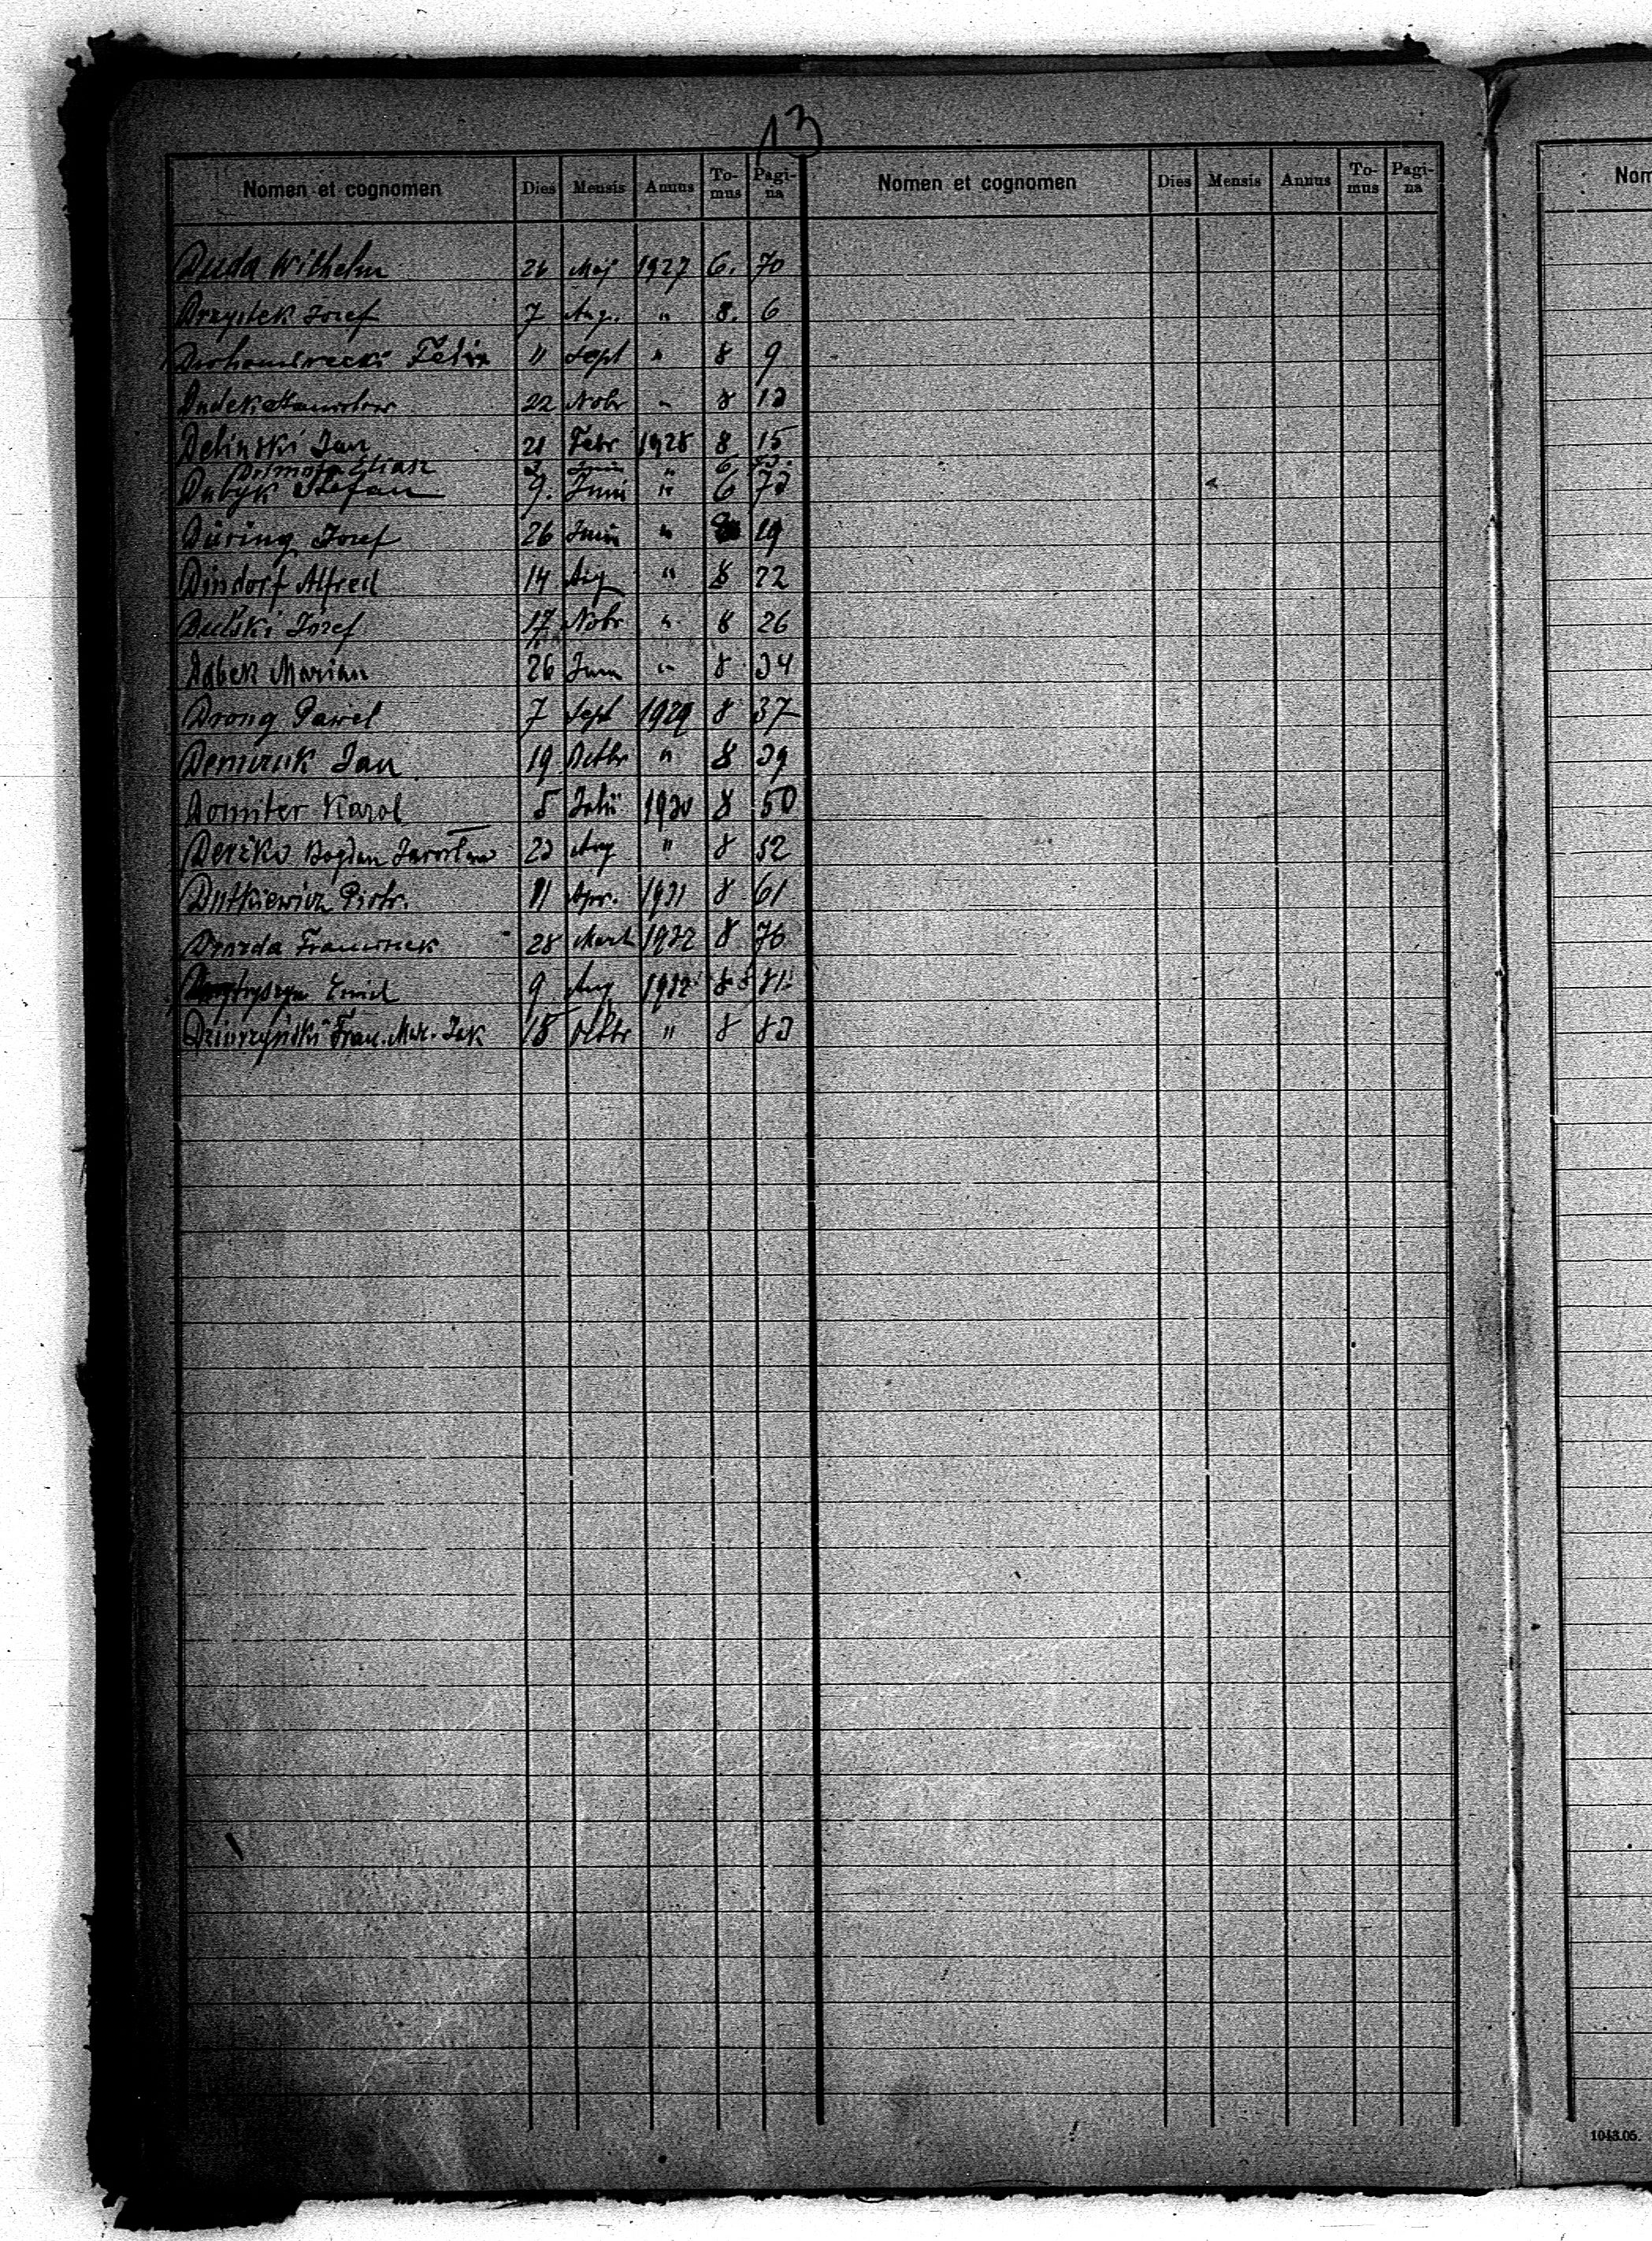 13
Nomen et cognomen Dies Mensis Annus To-mus Pagi-na Nomen et cognomen Dies Mensis Annus To-mus Pagi-na Nom
Duda Wilhelm 26 Maj 1927 6. 70
Drzystek Józef 7 Aug. " 8. 6
Felix 11 Sept " 8 9
Dudek Stanisław 22 Nobr " 8 13
Deliński Jan 21 Febr 1928 8 15
Eliasz " 6
Dubyk Stefan 9. Juni " 6 73
Düring Józef 26 Junii " 19
Dindorf Alfred 14 Aug " 8 22
Dulski Józef 17 Nobr " 8 26
Dąbek Marian 26 Juni " 8 34
Drong Paweł 7 Sept 1929 8 37
Demczuk Jan 19 Octbr " 8 39
Domiter Karol 5 Julii 1930 8 50
Derżko Bogdan Jarosław 23 Aug " 8 52
Dutkiewicz Piotr. 11 Apr. 1931 8 61
Drozda Franciszek 28 Mart 1932 8 76
Emil 9 Aug 1932 8 81
Dziurzyński Fran. Mar. Jak 15 Octbr " 8 83
1043.05.